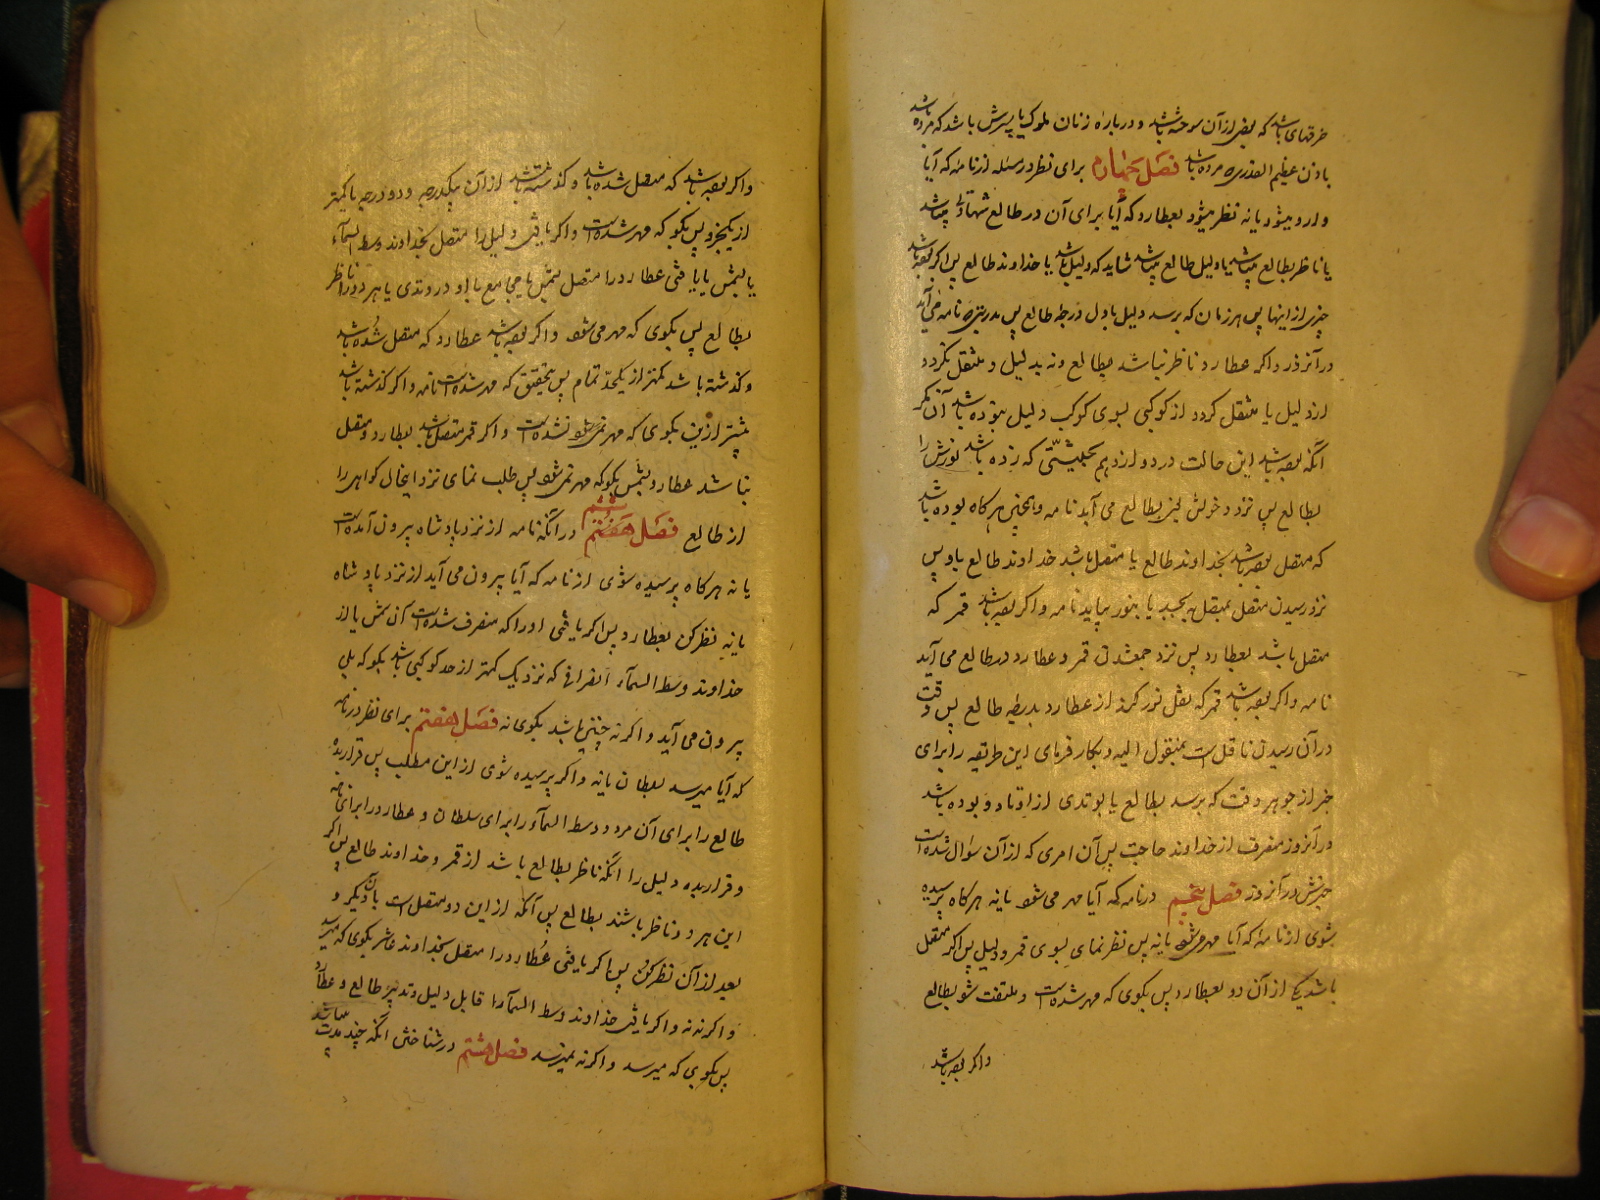 خرقهای باشد که بعض از آن سوخته باشد و درباره زنان ملوک یا پرسش باشد که مرده باشد
یا زن عظیم القدری مرده باشد فصل چهارم برای نظر در مسئله از نامه که آیا
وارد میشود یا نه نظر میشود بعطارد که آیا برای آن در طالع شهادتی میباشد
یا ناظر بطالع میباشد یا دلیل طالع میباشد شاید که دلیل باشد یا خداوند طالع پس اگر بوده باشد
چیزی از اینها پس هر زمان که برسد دلیل باول درجه طالع پس بدرستیکه نامه می آید
در آنروز و اگر عطارد ناظر نباشد بطالع و نه بدلیل و منتقل نگردد
از دلیل یا منتقل گردد از کوکبی بسوی کوکب دلیل بوده باشد آن مگر
آنکه بوده باشد این حالت در دوازدهم بحیثیتی که زده باشد نورش را
بطالع پس نزد دخولش بطالع می آید نامه و همچنین هرگاه بوده باشد
که متصل بوده باشد بخداوند طالع یا متصل باشد خداوند طالع باو پس
نزد رسیدن متصل بمتصل بجسد یا بنور بیاید نامه و اگر بوده باشد قمر که
متصل باشد بعطارد پس نزد جمع شدن قمر و عطارد در طالع می آید
نامه و اگر بوده باشد قمر که نقل نور کند از عطارد بدرجه طالع پس وقت
در آن رسیدن ناقل است بمنقول الیه و بکار فرمای این طریقه را برای
خبر از جوهر وقت که برسد بطالع یا بوتدی از اوتاد و بوده باشد
در آنروز منصرف از خداوند حاجت پس آن امری که از آن سؤال شده است
خبرش در آنروز فصل پنجم در نامه که آیا مهر می شود یا نه هرگاه پرسیده
شوی از نامه که آیا مهر می شود یا نه پس نظر نمای بسوی قمر و دلیل پس اگر متصل
باشد یکی از آن دو بعطارد پس بگوی که مهر شده است و ملتفت شو بطالع
و اگر بوده باشد
و اگر بوده باشد که متصل شده باشد و گذشته باشد از آن یکدرجه و دو درجه یا کمتر
از یکجزو پس بگو که مهر شده است و اگر یافتی دلیل را متصل بخداوند وسط السمآء
یا بشمس یا یافتی عطارد را متصل بشمس یا مجامع با او در وتدی یا هر دو را ناظر
بطالع پس بگوی که مهر می شود و اگر بوده باشد عطارد که متصل شده باشد
و گذشته باشد کمتر از یکحد تمام پس بتحقیق که مهر شده است نامه و اگر گذشته باشد
بیشتر از این بگوی که مهر نشده است و اگر قمر متصل باشد بعطارد و متصل
نباشد عطارد بشمس بگو که مهر نمی شود پس طلب نمای نزد اینحال گواهی را
از طالع فصل هفتم ششم در آنکه نامه از نزد پادشاه بیرون آمده است
یا نه هرگاه پرسیده شوی از نامه که آیا بیرون می آید از نزد پادشاه
یا نه نظر کن بعطارد پس اگر یافتی او را که منصرف شده است از شمس یا از
خداوند وسط السمآء انصرافی که نزدیک کمتر از حد کوکبی باشد بگو که بلی
بیرون می آید و اگر نه چنین باشد بگوی نه فصل هفتم برای نظر در نامه
که آیا میرسد بسلطان یا نه و اگر پرسیده شوی از این مطلب پس قرار بده
طالع را برای آن مرد و وسط السمآء را برای سلطان و عطارد را برای نامه
و قرار بده دلیل را آنکه ناظر بطالع باشد از قمر و خداوند طالع پس اگر
این هر دو ناظر باشند بطالع پس آنکه از این دو متصل است بآن دیگر و
بعد از آن نظر کن پس اگر یافتی عطارد را متصل بخداوند عاشر بگوی که میرسد
و اگر نه نه و اگر یافتی خداوند وسط السمآء را قابل دلیل و تدبیر طالع و عطارد
پس بگوی که میرسد و اگر نه نمیرسد فصل هشتم در شناختن آنکه چند مدت میباشد